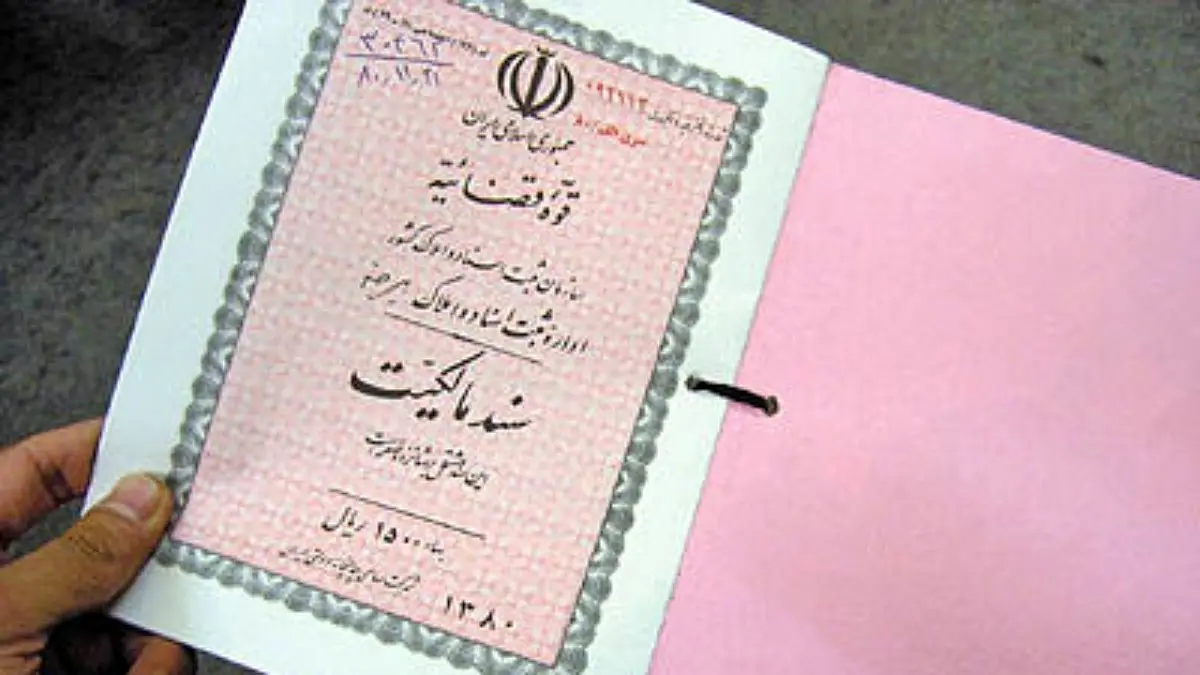 ۳۰۴۶۲
۸۰,۱۱,۲۱
۰۹۲۶۱۳
جمهوری اسلامی ایران
قوّه قضائیّه
سازمان ثبت اسناد و املاک کشور
اداره ثبت اسناد و املاک
سند مالکیّت
این سند مشتمل بر شانزده صفحه است
بهاء ۱۵۰۰ ریال
۱۳۸۰